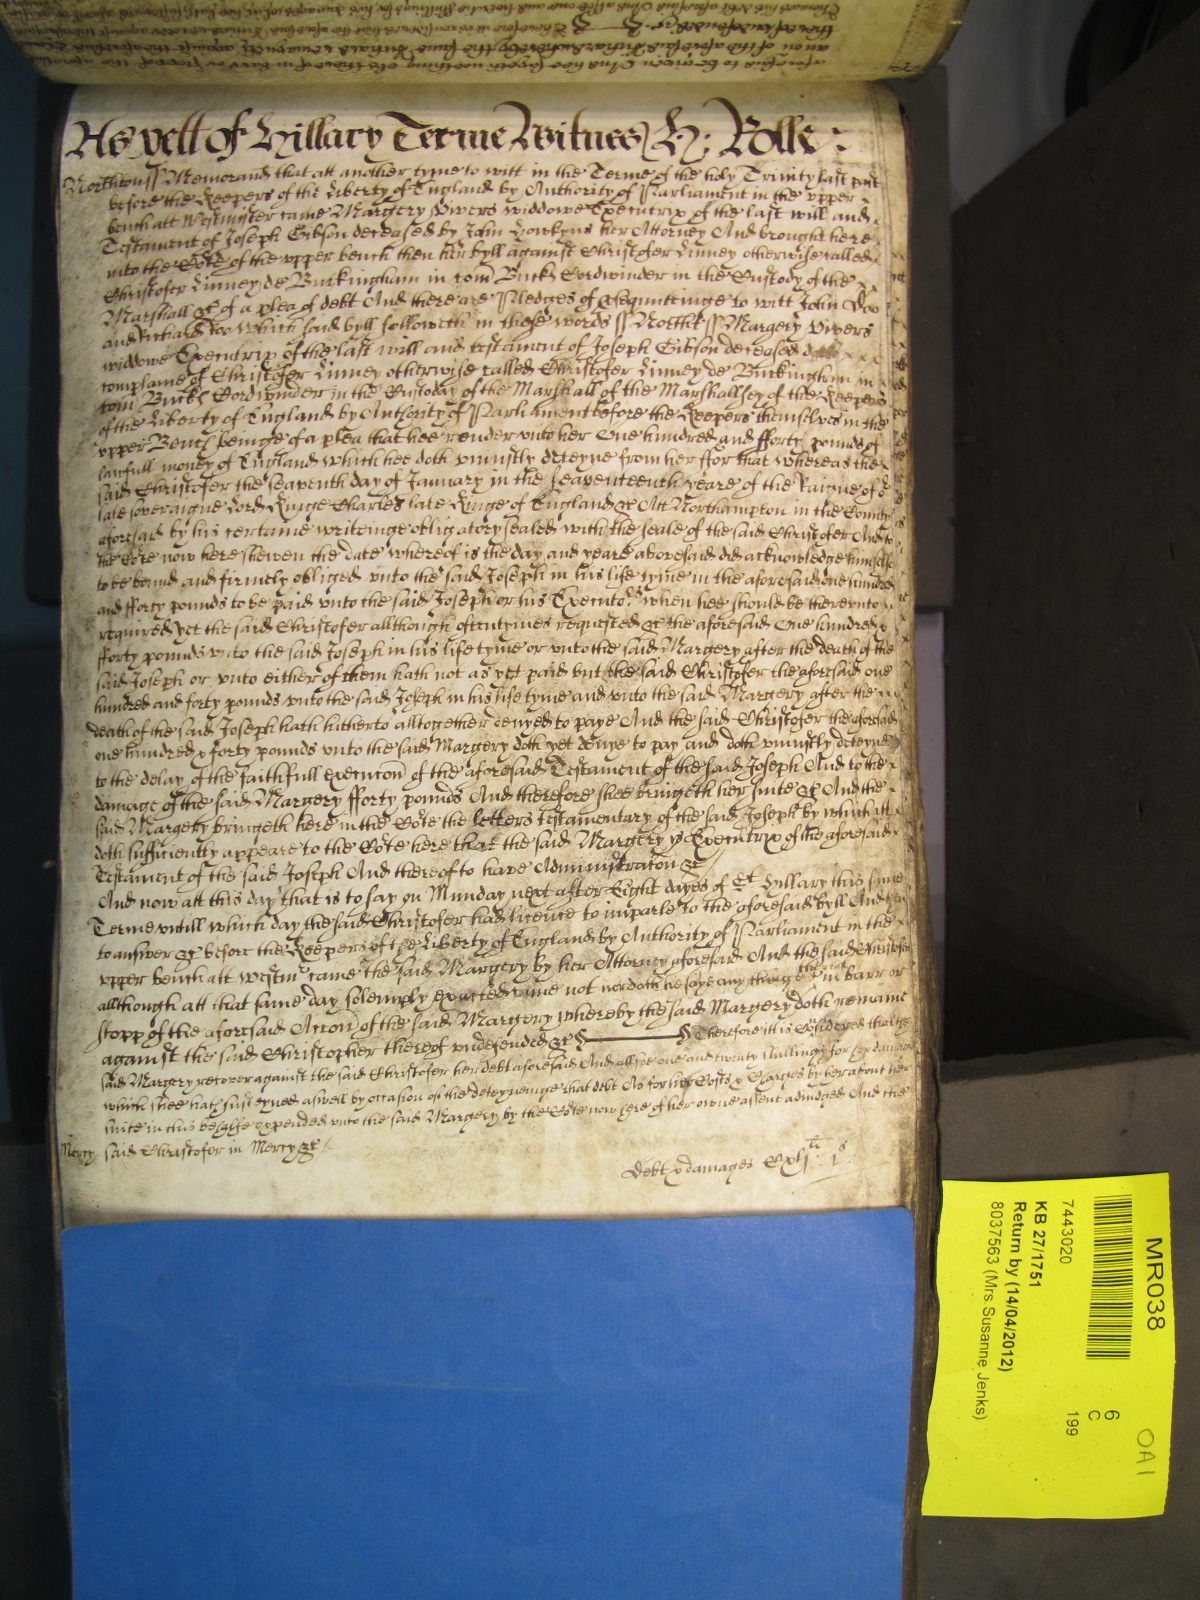 As yett of Hillary Terme Witnes H: Rolle :
Northton ss Memorand that att another tyme to witt in the Terme of the holy Trinity last past
before the Keepers of the Liberty of England by Authority of Parliament in the vpper
bench att Westminster came Margery Vivers widdowe Executrix of the last will and
Testament of Joseph Gibson deceased by John Howkyns her Attorney And brought here
into the Co'te of the vpper bench then her byll against Christofer Linney otherwise called
Christofer Linney de Buckingham in com Buck Cordwinder in the Custody of the
Marshall &c of a plea of debt And there are Pledges of p'sequutinge to witt John Doo
and Richard Roo Which said byll followeth in these words ss North't ss Margery Vivers
widdowe Executrix of the last will and testament of Joseph Gibson deceased
complaine of Christofer Linney otherwise called Christofer Linney de Buckingham in
com Buck Cordwinder in the Custody of the Marshall of the Marshallsey of the Keepers
of the Liberty of England by Authority of Parliament before the Keepers themselves in the
vpper Bench beinge of a plea that hee render vnto her One hundred and fforty pounds of
lawfull money of England which hee doth vniustly deteyne from her ffor that whereas the
said Christofer the seaventh day of January in the seaventeenth yeare of the Raigne of o'r
late soveraigne Lord Kinge Charles late Kinge of England &c Att Northampton in the County
aforesaid by his certaine writeinge obligatory sealed with the seale of the said Christofer And to
the Co'te now here shewen the date whereof is the day and yeare abovesaid did acknowledge himselfe
to be bound and firmely obliged vnto the said Joseph in his life tyme in the aforesaid one hundred
and fforty pounds to be paid vnto the said Joseph or his Executo'rs when hee should be therevnto
required yet the said Christofer allthough oftentymes requested &c the aforesaid One hundred &
fforty pounds vnto the said Joseph in his life tyme or vnto the said Margery after the death of the
said Joseph or vnto either of them hath not as yet paid but the said Christofer the aforesaid one
hundred and forty pounds vnto the said Joseph in his life tyme and vnto the said Margery after the
death of the said Joseph hath hitherto alltogether denyed to paye And the said Christofer the aforesaid
one hundred & forty pounds vnto the said Margery doth yet denye to pay and doth vniustly deteyne
to the delay of the faithfull execucon of the aforesaid Testament of the said Joseph And to the
damage of the said Margery fforty pounds And therefore shee bringeth her suite &c And the
said Margery bringeth here in the Co'te the letters testamentary of the said Joseph by which itt
doth sufficiently appeare to the Co'te here that the said Margery ys Executrix of the aforesaid
Testament of the said Joseph And thereof to have Administration &c
And now att this day that is to say on Munday next after Eight dayes of St Hillary this same
Terme vntill which day the said Christofer had licence to imparle to the aforesaid byll And then
to answer &c before the Keepers of the Liberty of England by Authority of Parliament in the
vpper bench att Westm'r came the said Margery by her Attorney aforesaid And the said Christofer
allthough att that same day solemply exacted came not nor doth he saye any thinge thereat in barr or
stopp of the aforesaid Accon of the said Margery whereby the said Margery doth remaine
against the said Christopher thereof vndefended &c Therefore itt is Considered that the
said Margery recover against the said Christofer her debt aforesaid And allsoe one and twenty shillings for her damages
which shee hath susteyned aswell by occasion of the deteyneinge that debt As for her Costs & Charges by her about her
suite in this behalfe expended vnto the said Margery by the Co'te now here of her owne assent adiudged And the
Mercy said Christofer in Mercy &c
Debt & damages Cxlj li js
MR038
7443020
KB 27/1751
Return by (14/04/2012)
8037563 (Mrs Susanne Jenks)
6
C
199
OA1